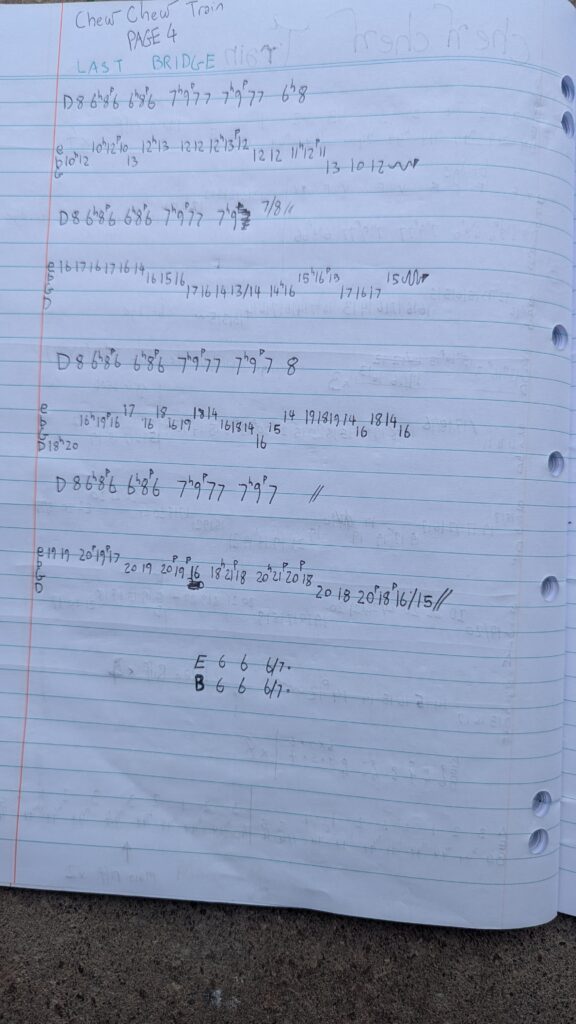 Chew Chew Train
PAGE 4
LAST BRIDGE
D 8 6h8p6 6h8p6 7h9p77 7h9p77 6h8
e 10h12p10 12h13 12 12 12h13p12
b 10h12 13 12 12 11h12p11
G 13 10 12
D 8 6h8p6 6h8p6 7h9p77 7h9 7/8 //
e 16 17 16 17 16 14 15h16p13 15
b 16 15 16 17 16 17
G 17 16 14 13/14 14h16
D
D 8 6h8p6 6h8p6 7h9p77 7h9p7 8
e 17 18 18 14 14 19 18 19 14 18 14
b 16h19p16 16 16 19 16 18 14 15 16 16
G 16
D 18h20
D 8 6h8p6 6h8p6 7h9p77 7h9p7 //
e 19 19 20p19p17
b 20 19 20p19p16 18h21p18 20h21p20p18
G 20 18 20p18p16/15 //
D
E 6 6 6/7.
B 6 6 6/7.